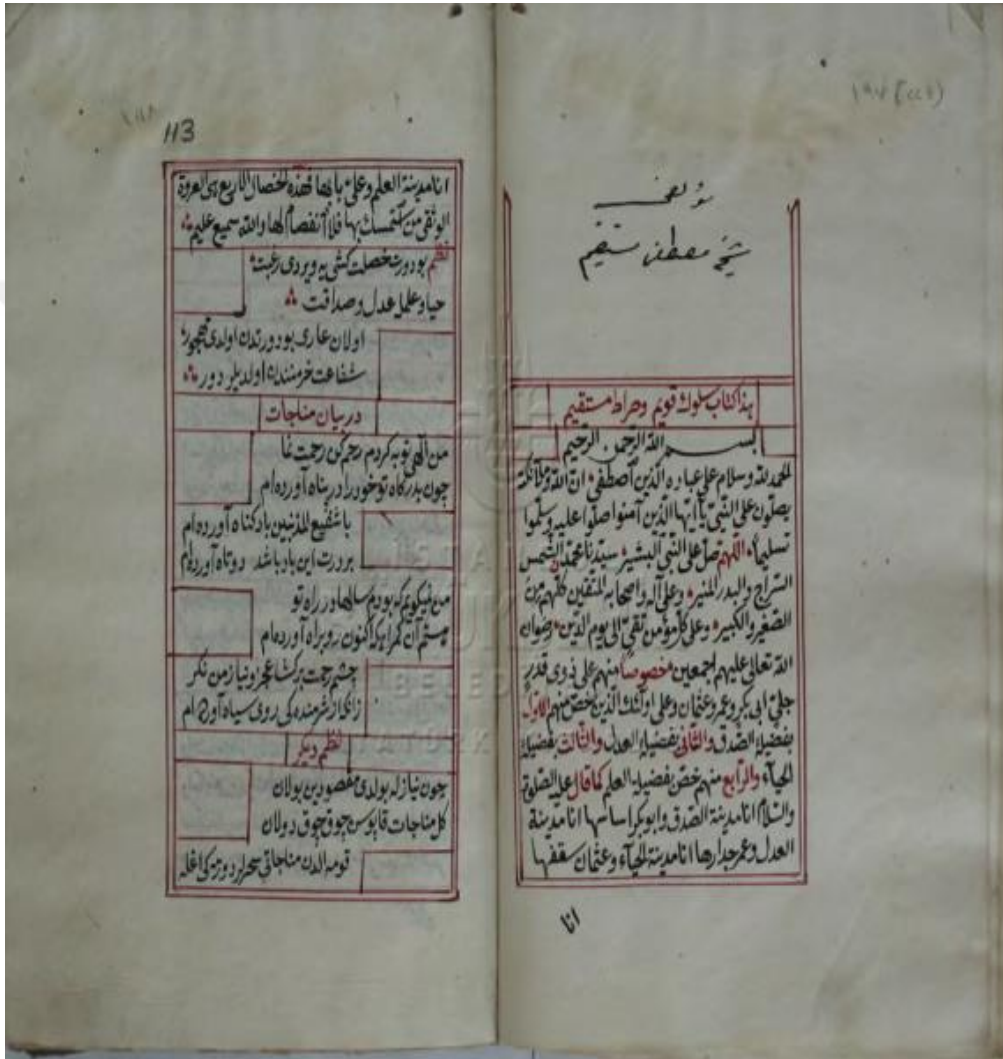 مؤلف
شيخ مصطفى مستقيم
هذا كتاب سلوك قويم وصراط مستقيم
بسم الله الرحمن الرحيم
الحمد لله وسلام على عباده الذين اصطفى ان الله وملائكته
يصلون على النبي يا ايها الذين آمنوا صلوا عليه وسلموا
تسليما اللهم صل على النبي البشير سيدنا محمد الشمس
السراج والبدر المنير وعلى آله واصحابه المتقين كلهم من
الصغير والكبير وعلى كل مؤمن تقي الى يوم الدين رضوان
الله تعالى عليهم اجمعين خصوصا منهم على ذوى قدر
جلي ابى بكر وعمر وعثمان وعلى اولئك الذين خص منهم الاول
بفضيلة الصدق والثانى بفضيلة العدل والثالث بفضيلة
الحياء والرابع منهم خص بفضيلة العلم كما قال عليه الصلوة
والسلام انا مدينة الصدق وابو بكر اساسها انا مدينة
العدل وعمر جدارها انا مدينة الحياء وعثمان سقفها
انا
113
انا مدينة العلم وعلى بابها فهذه الخصال الاربع هى العروة
الوثقى من استمسك بها فلا انفصام لها والله سميع عليم
نظم بو دورت خصلت كشى يه ويردى رغبت
حيا وعلم عدل وصداقت
اولان عارى بو دورتدن اولدى مهجور
شفاعت خرمنندن اولديلر دور
در بيان مناجات
من الهى توبه كردم رحم كن رحمت نما
چون بدركاه تو خود را در پناه آورده ام
يا شفيع المذنبين بار كناه آورده ام
بر درت اين بار باشد دوتاه آورده ام
من نميكويم كه بودم سالها در راه تو
هستم آن كمراه كه اكنون رو براه آورده ام
چشم رحمت بركشا عجز ونياز من نكر
زانكه از شرمنده كى روى سياه آورده ام
نظم ديكر
چون نياز له بولدى مقصودين بولان
كل مناجات قاپوسن چوق چوق دولان
قومه الدن مناجاتى سحرلردور كى اغله